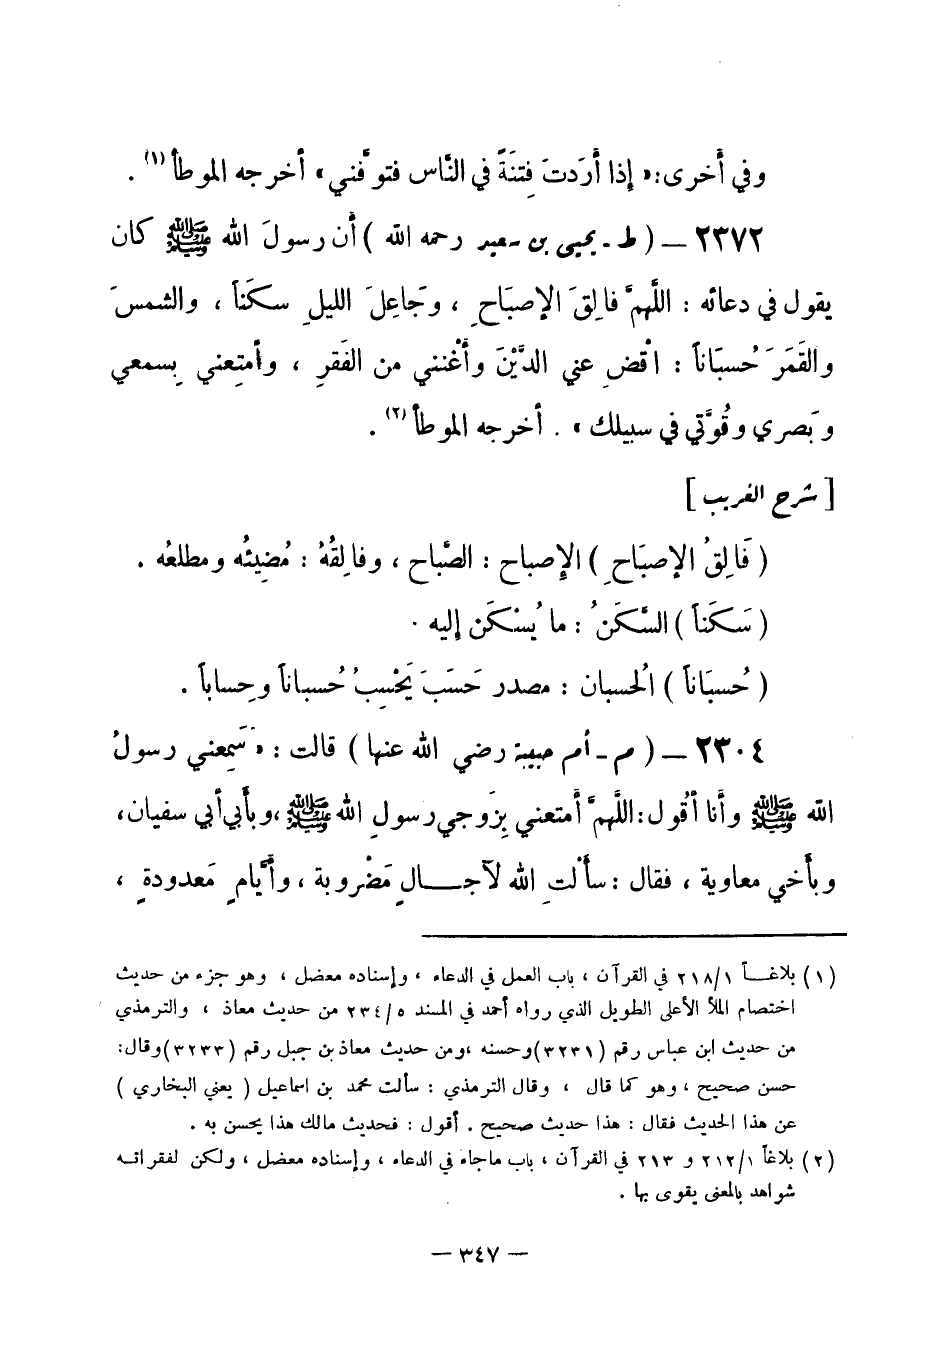 وفي أُخرى: « إذا أَرَدتَ فِتنَةً في النَّاس فتوفَّني » أخرجه الموطأ (١) .
٢٣٧٢ – ( ط - يحيى بن سعيد رحمه الله ) أن رسولَ الله ﷺ كان
يقول في دعائه : اللَّهمَّ فالِقَ الإصبَاحِ ، وجَاعِلَ الليلِ سكَناً ، والشمسَ
والقَمَرَ حُسبَاناً : اقْضِ عني الدَّيْنَ وأَغْنني من الفَقرِ ، وأمتِعني بِسمعي
وبَصري وقُوَّتي في سبيلك » . أخرجه الموطأ (٢) .
[ شرح الغريب ]
( فَالِقُ الإصبَاحِ ) الإصباح : الصَّباح ، وفالِقُهُ : مُضِيئُه ومطلعُه .
( سَكَناً ) السَّكَنُ : ما يُسْكَن إليه .
( حُسبَاناً ) الحُسبان : مصدر حَسَبَ يَحْسِبُ حُسباناً وحِساباً .
٢٣٠٤ – ( م - أم حبيبة رضي الله عنها ) قالت : « سَمِعني رسولُ
الله ﷺ وأنا أقُول : اللَّهمَّ أمتعني بِزَوجي رسولِ الله ﷺ ، وبأَبي أبي سفيان ،
وبأَخي معاوية ، فقال : سألْتِ الله لآجـــالٍ مَضْروبة ، وأيَّامٍ مَعدودةٍ ،
(١) بلاغـــاً ٢١٨/١ في القرآن ، باب العمل في الدعاء ، وإسناده معضل ، وهو جزء من حديث
اختصام الملأ الأعلى الطويل الذي رواه أحمد في المسند ٢٣٤/٥ من حديث معاذ ، والترمذي
من حديث ابن عباس رقم (٣٢٣١) وحسنه ، ومن حديث معاذ بن جبل رقم (٣٢٣٣) وقال :
حسن صحيح ، وهو كما قال ، وقال الترمذي : سألت محمد بن اسماعيل ( يعني البخاري )
عن هذا الحديث فقال : هذا حديث صحيح . أقول : فحديث مالك هذا يحسن به .
(٢) بلاغاً ٢١٢/١ و ٢١٣ في القرآن ، باب ماجاء في الدعاء ، وإسناده معضل ، ولكن لفقراتـه
شواهد بالمعنى يقوى بها .
– ٣٤٧ –